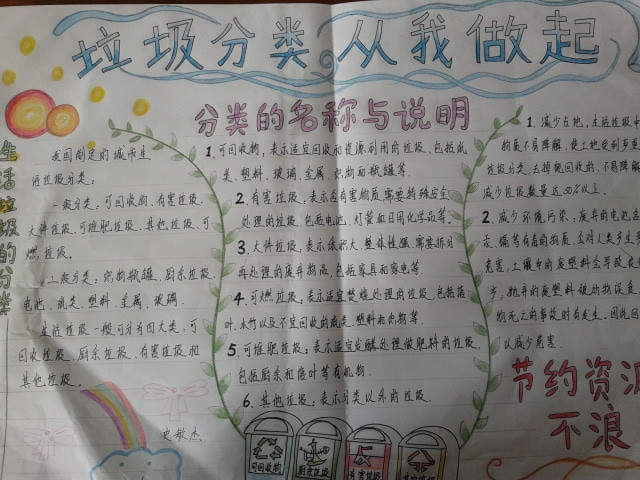 垃圾分类 从我做起
生活垃圾的分类
我国制定的城市生
活垃圾分类:
一级分类:可回收物、有害垃圾、
大件垃圾、可堆肥垃圾、其他垃圾、可
燃垃圾.
二级分类:织物、瓶罐、厨余垃圾、
电池、纸类、塑料、金属、玻璃.
其活垃圾一般可分为四大类:可
回收垃圾、厨余垃圾、有害垃圾和
其他垃圾.
史敏杰
分类的名称与说明
1.可回收物,表示适宜回收和资源利用的垃圾,包括纸
类、塑料、玻璃、金属、织物和瓶罐等.
2.有害垃圾:表示含有害物质需要特殊安全
处理的垃圾,包括电池、灯管和日用化学品等.
3.大件垃圾:表示体积大、整体性强,需要拆分
再处理的废弃物品,包括家具和家电等.
4.可燃垃圾:表示适宜焚烧处理的垃圾,包括落
叶、木竹以及不宜回收的纸类、塑料和织物等.
5.可堆肥垃圾:表示适宜发酵处理做肥料的垃圾,
包括厨余和废叶等有机物.
6.其他垃圾:表示分类以外的垃圾.
可回收物
厨余垃圾
有害垃圾
其他垃圾
1.减少占地,生活垃圾中
物质不易降解,使土地受到
分类,去掉能回收的、不易降解
减少垃圾数量达50%以上.
2.减少环境污染:废弃的电池
汞、镉等有毒的物质,会对人类产生
危害,土壤中的废塑料会导致
抛弃的废塑料被动物误
物死亡的事故时有发生.因此回
以减少危害.
节约资源
不浪